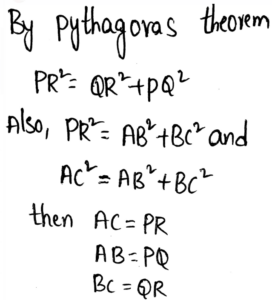 By pythagoras theorem
PR²= QR²+PQ²
Also, PR²= AB²+BC² and
AC²=AB²+BC²
then AC=PR
AB=PQ
BC=QR